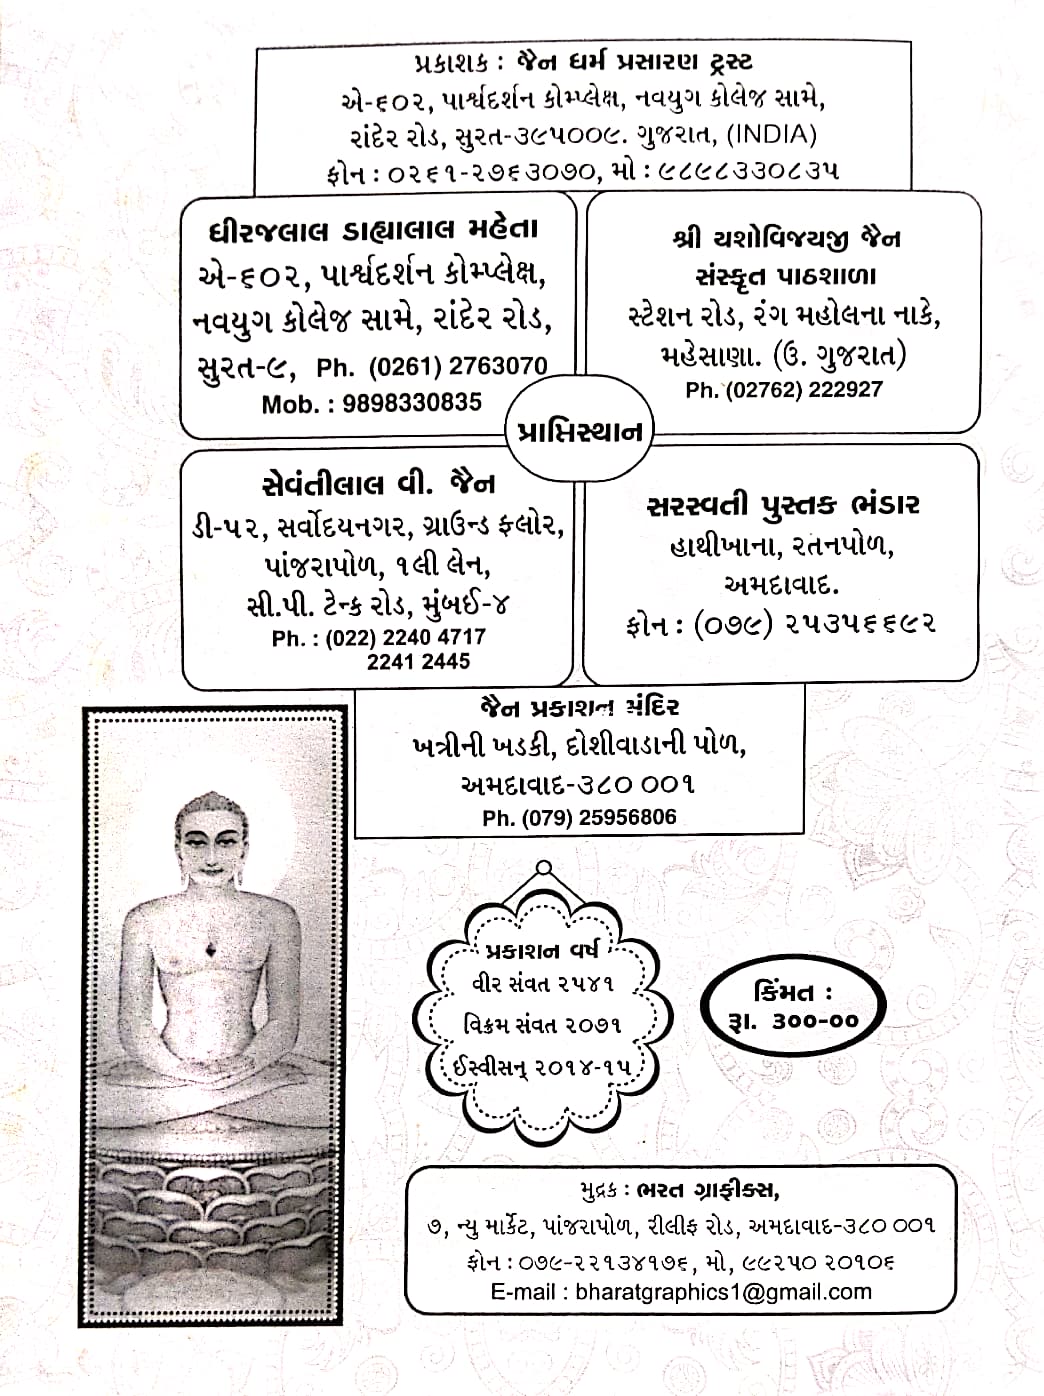 પ્રકાશક : જૈન ધર્મ પ્રસારણ ટ્રસ્ટ
એ-૬૦૨, પાર્શ્વદર્શન કોમ્પ્લેક્ષ, નવયુગ કોલેજ સામે,
રાંદેર રોડ, સુરત-૩૯૫૦૦૯. ગુજરાત, (INDIA)
ફોન : ૦૨૬૧-૨૭૬૩૦૭૦, મો : ૯૮૯૮૩૩૦૮૩૫
ધીરજલાલ ડાહ્યાલાલ મહેતા
એ-૬૦૨, પાર્શ્વદર્શન કોમ્પ્લેક્ષ,
નવયુગ કોલેજ સામે, રાંદેર રોડ,
સુરત-૯, Ph. (0261) 2763070
Mob. : 9898330835
શ્રી યશોવિજયજી જૈન
સંસ્કૃત પાઠશાળા
સ્ટેશન રોડ, રંગ મહોલના નાકે,
મહેસાણા. (ઉ. ગુજરાત)
Ph. (02762) 222927
પ્રાપ્તિસ્થાન
સેવંતીલાલ વી. જૈન
ડી-૫૨, સર્વોદયનગર, ગ્રાઉન્ડ ફ્લોર,
પાંજરાપોળ, ૧લી લેન,
સી.પી. ટેન્ક રોડ, મુંબઈ-૪
Ph. : (022) 2240 4717
2241 2445
સરસ્વતી પુસ્તક ભંડાર
હાથીખાના, રતનપોળ,
અમદાવાદ.
ફોન : (૦૭૯) ૨૫૩૫૬૬૯૨
જૈન પ્રકાશન મંદિર
ખત્રીની ખડકી, દોશીવાડાની પોળ,
અમદાવાદ-૩૮૦ ૦૦૧
Ph. (079) 25956806
પ્રકાશન વર્ષ
વીર સંવત ૨૫૪૧
વિક્રમ સંવત ૨૦૭૧
ઈસ્વીસન્ ૨૦૧૪-૧૫
કિંમત :
રૂા. ૩૦૦-૦૦
મુદ્રક : ભરત ગ્રાફીક્સ,
૭, ન્યુ માર્કેટ, પાંજરાપોળ, રીલીફ રોડ, અમદાવાદ-૩૮૦ ૦૦૧
ફોન : ૦૭૯-૨૨૧૩૪૧૭૬, મો, ૯૯૨૫૦ ૨૦૧૦૬
E-mail : bharatgraphics1@gmail.com